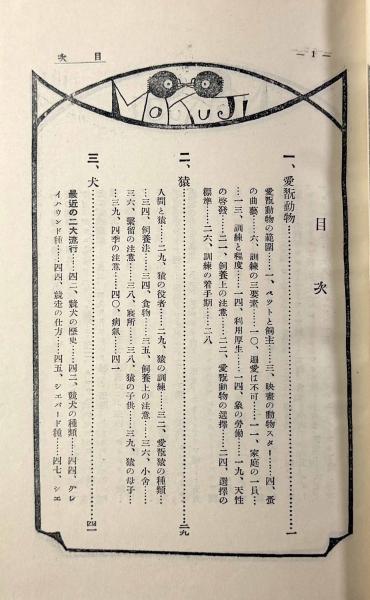 目次
— 1 —
MOKUJI
目次
一、愛翫動物……一
愛翫動物の範圍……一、ペットと飼主……三、映畫の動物スター……四、蚤
の曲藝……六、訓練の三要素……一〇、過愛は不可……一一、家庭の一員…
…一三、訓練と程度……一四、利用厚生……一四、象の勞働……一九、天性
の啓發……二一、飼養上の注意……二二、愛翫動物の選擇……二四、選擇の
標準……二六、訓練の着手期……二八
二、猿……二九
人間と猿……二九、猿の役者……二九、猿の訓練……三二、愛翫猿の種類…
…三四、飼養法……三四、食物……三五、飼養上の注意……三六、小舍……
三六、繫留の注意……三八、寢所……三八、猿の子供……三九、猿の母子…
…三九、四季の注意……四〇、病氣……四一
三、犬……四一
最近の二大流行……四二、競犬の歷史……四二、競犬の種類……四四、グレ
イハウンド種……四四、競走の仕方……四五、シェパード種……四七、シエ